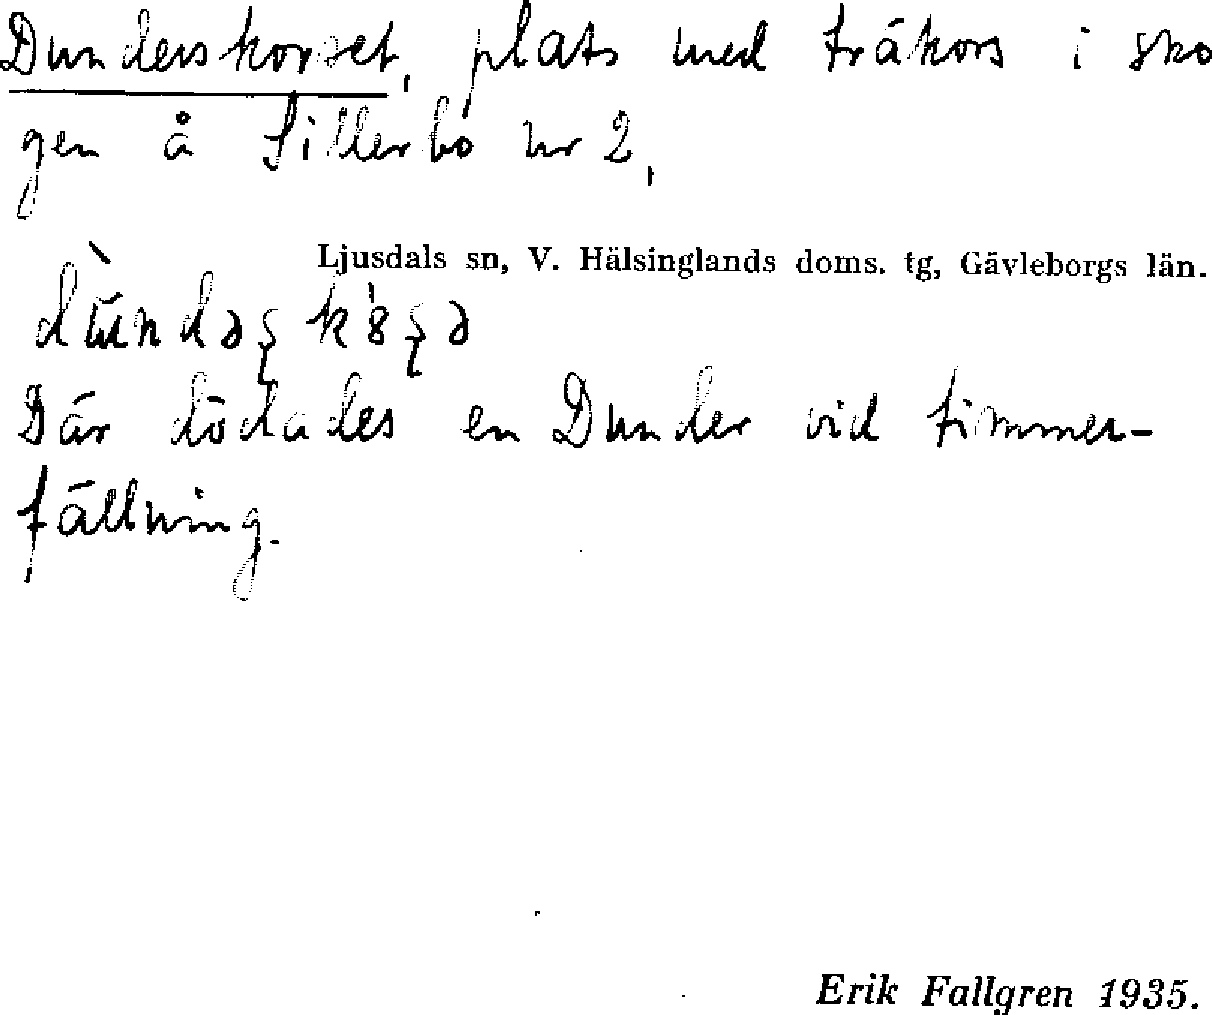 Dunderskorset, plats med träkors i sko
gen å Sillerbo nr 2,
Ljusdals sn, V. Hälsinglands doms. tg, Gävleborgs län.
Där dödades en Dunder vid timmer-
fällning.
Erik Fallgren 1935.